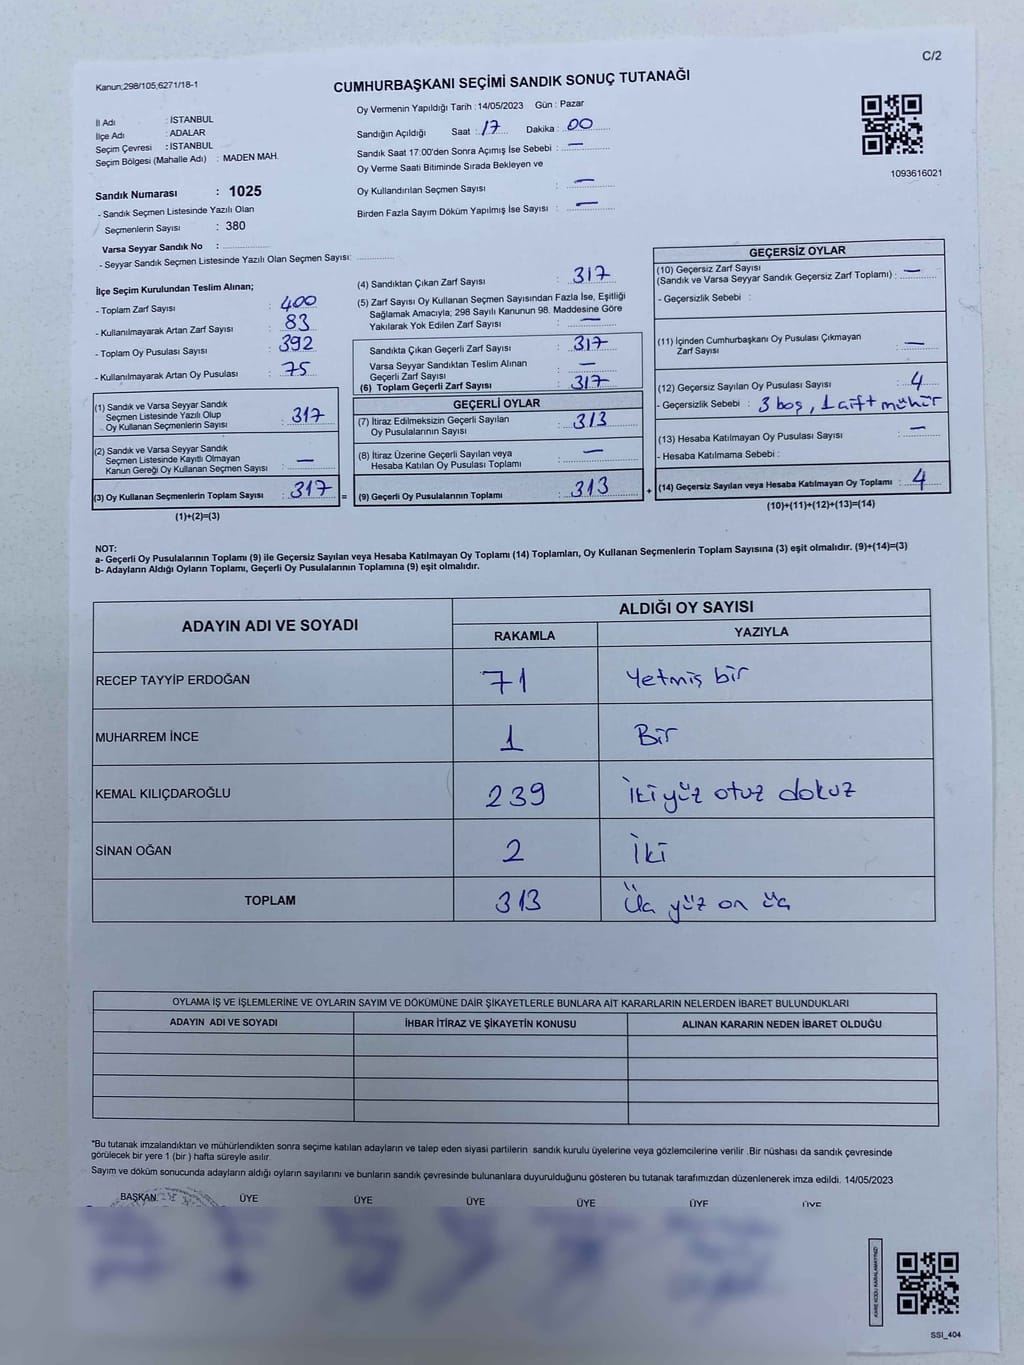 C/2
Kanun;298/105;6271/18-1
CUMHURBAŞKANI SEÇİMİ SANDIK SONUÇ TUTANAĞI
İl Adı : İSTANBUL
İlçe Adı : ADALAR
Seçim Çevresi : İSTANBUL
Seçim Bölgesi (Mahalle Adı) : MADEN MAH.
Oy Vermenin Yapıldığı Tarih : 14/05/2023 Gün : Pazar
Sandığın Açıldığı Saat : 17 Dakika : 00
Sandık Saat 17:00'den Sonra Açımış İse Sebebi : —
Oy Verme Saati Bitiminde Sırada Bekleyen ve
Oy Kullandırılan Seçmen Sayısı : —
Birden Fazla Sayım Döküm Yapılmış İse Sayısı : —
1093616021
Sandık Numarası : 1025
- Sandık Seçmen Listesinde Yazılı Olan
Seçmenlerin Sayısı : 380
Varsa Seyyar Sandık No :
- Seyyar Sandık Seçmen Listesinde Yazılı Olan Seçmen Sayısı:
İlçe Seçim Kurulundan Teslim Alınan;
- Toplam Zarf Sayısı : 400
- Kullanılmayarak Artan Zarf Sayısı : 83
- Toplam Oy Pusulası Sayısı : 392
- Kullanılmayarak Artan Oy Pusulası : 75
(1) Sandık ve Varsa Seyyar Sandık
Seçmen Listesinde Yazılı Olup
Oy Kullanan Seçmenlerin Sayısı : 317
(2) Sandık ve Varsa Seyyar Sandık
Seçmen Listesinde Kayıtlı Olmayan
Kanun Gereği Oy Kullanan Seçmen Sayısı : —
(3) Oy Kullanan Seçmenlerin Toplam Sayısı : 317 =
(1)+(2)=(3)
(4) Sandıktan Çıkan Zarf Sayısı : 317
(5) Zarf Sayısı Oy Kullanan Seçmen Sayısından Fazla İse, Eşitliği
Sağlamak Amacıyla; 298 Sayılı Kanunun 98. Maddesine Göre
Yakılarak Yok Edilen Zarf Sayısı : —
Sandıkta Çıkan Geçerli Zarf Sayısı : 317
Varsa Seyyar Sandıktan Teslim Alınan
Geçerli Zarf Sayısı : —
(6) Toplam Geçerli Zarf Sayısı : 317
GEÇERLİ OYLAR
(7) İtiraz Edilmeksizin Geçerli Sayılan
Oy Pusulalarının Sayısı : 313
(8) İtiraz Üzerine Geçerli Sayılan veya
Hesaba Katılan Oy Pusulası Toplamı : —
(9) Geçerli Oy Pusulalarının Toplamı : 313 +
GEÇERSİZ OYLAR
(10) Geçersiz Zarf Sayısı
(Sandık ve Varsa Seyyar Sandık Geçersiz Zarf Toplamı) : —
- Geçersizlik Sebebi :
(11) İçinden Cumhurbaşkanı Oy Pusulası Çıkmayan
Zarf Sayısı : —
(12) Geçersiz Sayılan Oy Pusulası Sayısı : 4
- Geçersizlik Sebebi : 3 boş, 1 çift mühür
(13) Hesaba Katılmayan Oy Pusulası Sayısı : —
- Hesaba Katılmama Sebebi :
(14) Geçersiz Sayılan veya Hesaba Katılmayan Oy Toplamı : 4
(10)+(11)+(12)+(13)=(14)
NOT:
a- Geçerli Oy Pusulalarının Toplamı (9) ile Geçersiz Sayılan veya Hesaba Katılmayan Oy Toplamı (14) Toplamları, Oy Kullanan Seçmenlerin Toplam Sayısına (3) eşit olmalıdır. (9)+(14)=(3)
b- Adayların Aldığı Oyların Toplamı, Geçerli Oy Pusulalarının Toplamına (9) eşit olmalıdır.
ADAYIN ADI VE SOYADI
ALDIĞI OY SAYISI
RAKAMLA YAZIYLA
RECEP TAYYİP ERDOĞAN 71 Yetmiş bir
MUHARREM İNCE 1 Bir
KEMAL KILIÇDAROĞLU 239 İki yüz otuz dokuz
SİNAN OĞAN 2 İki
TOPLAM 313 Üç yüz on üç
OYLAMA İŞ VE İŞLEMLERİNE VE OYLARIN SAYIM VE DÖKÜMÜNE DAİR ŞİKAYETLERLE BUNLARA AİT KARARLARIN NELERDEN İBARET BULUNDUKLARI
ADAYIN ADI VE SOYADI İHBAR İTİRAZ VE ŞİKAYETİN KONUSU ALINAN KARARIN NEDEN İBARET OLDUĞU
*Bu tutanak imzalandıktan ve mühürlendikten sonra seçime katılan adayların ve talep eden siyasi partilerin sandık kurulu üyelerine veya gözlemcilerine verilir .Bir nüshası da sandık çevresinde
görülecek bir yere 1 (bir ) hafta süreyle asılır.
Sayım ve döküm sonucunda adayların aldığı oyların sayılarını ve bunların sandık çevresinde bulunanlara duyurulduğunu gösteren bu tutanak tarafımızdan düzenlenerek imza edildi. 14/05/2023
BAŞKAN ÜYE ÜYE ÜYE ÜYE ÜYE ÜYE
KARE KODU KARALAMAYINIZ!
SSİ_404